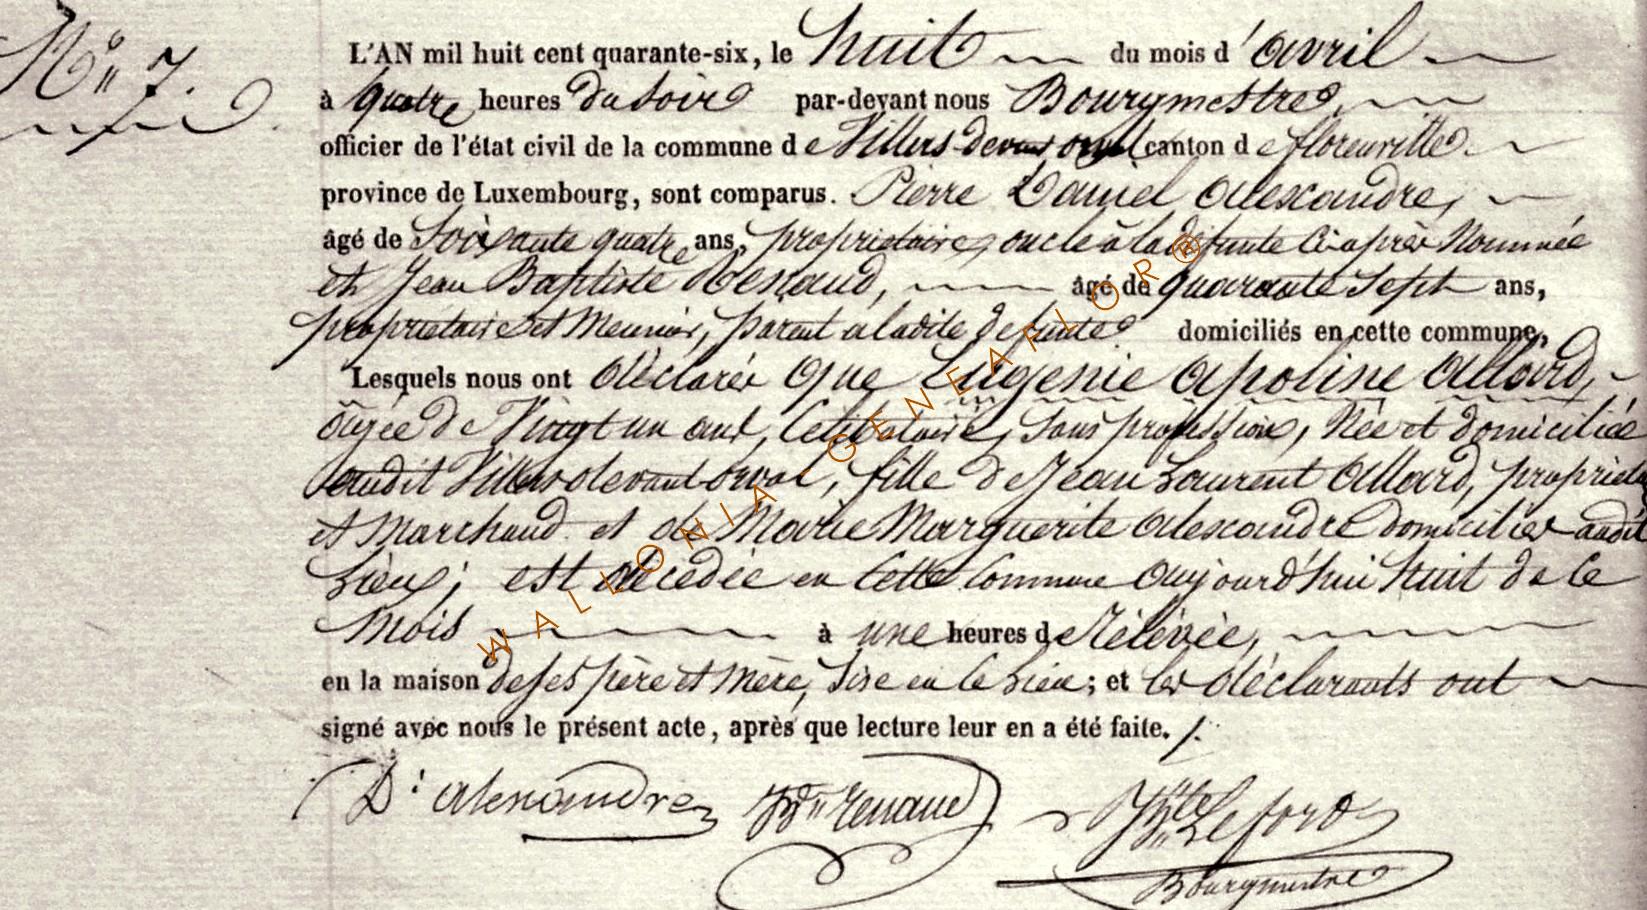 N° 7.
L'AN mil huit cent quarante-six, le huit du mois d'avril
à quatre heures du soir par-devant nous Bourgmestre,
officier de l'état civil de la commune de Villers devant orval canton de florenville
province de Luxembourg, sont comparus. Pierre Daniel Alexandre,
âgé de Soixante quatre ans, propriétaire, oncle à la défunte Ci après Nommée
et Jean Baptiste Renaud, âgé de quarante Sept ans,
propriétaire et Meunier, parent a ladite defunte domiciliés en cette commune,
Lesquels nous ont déclaré que Eugenie Apoline Allard,
âgée de Vingt un ans, Celibataire, Sans profession, Née et domiciliée
audit Villers devant orval, fille de Jean Laurent Allard, proprieta
et Marchand et de Marie Marguerite Alexandre domiciliés audit
Lieu; est décédée en Cette Commune Aujourd'hui huit de Ce
Mois à une heures de Rélévée,
en la maison de ses père et Mère, Sise en Ce Lieu; et les déclarants ont
signé avec nous le présent acte, après que lecture leur en a été faite./.
D: Alexandre JBte Renaud JBte Leford
Bourgmestre
WALLONIA - GENEAFLOR®